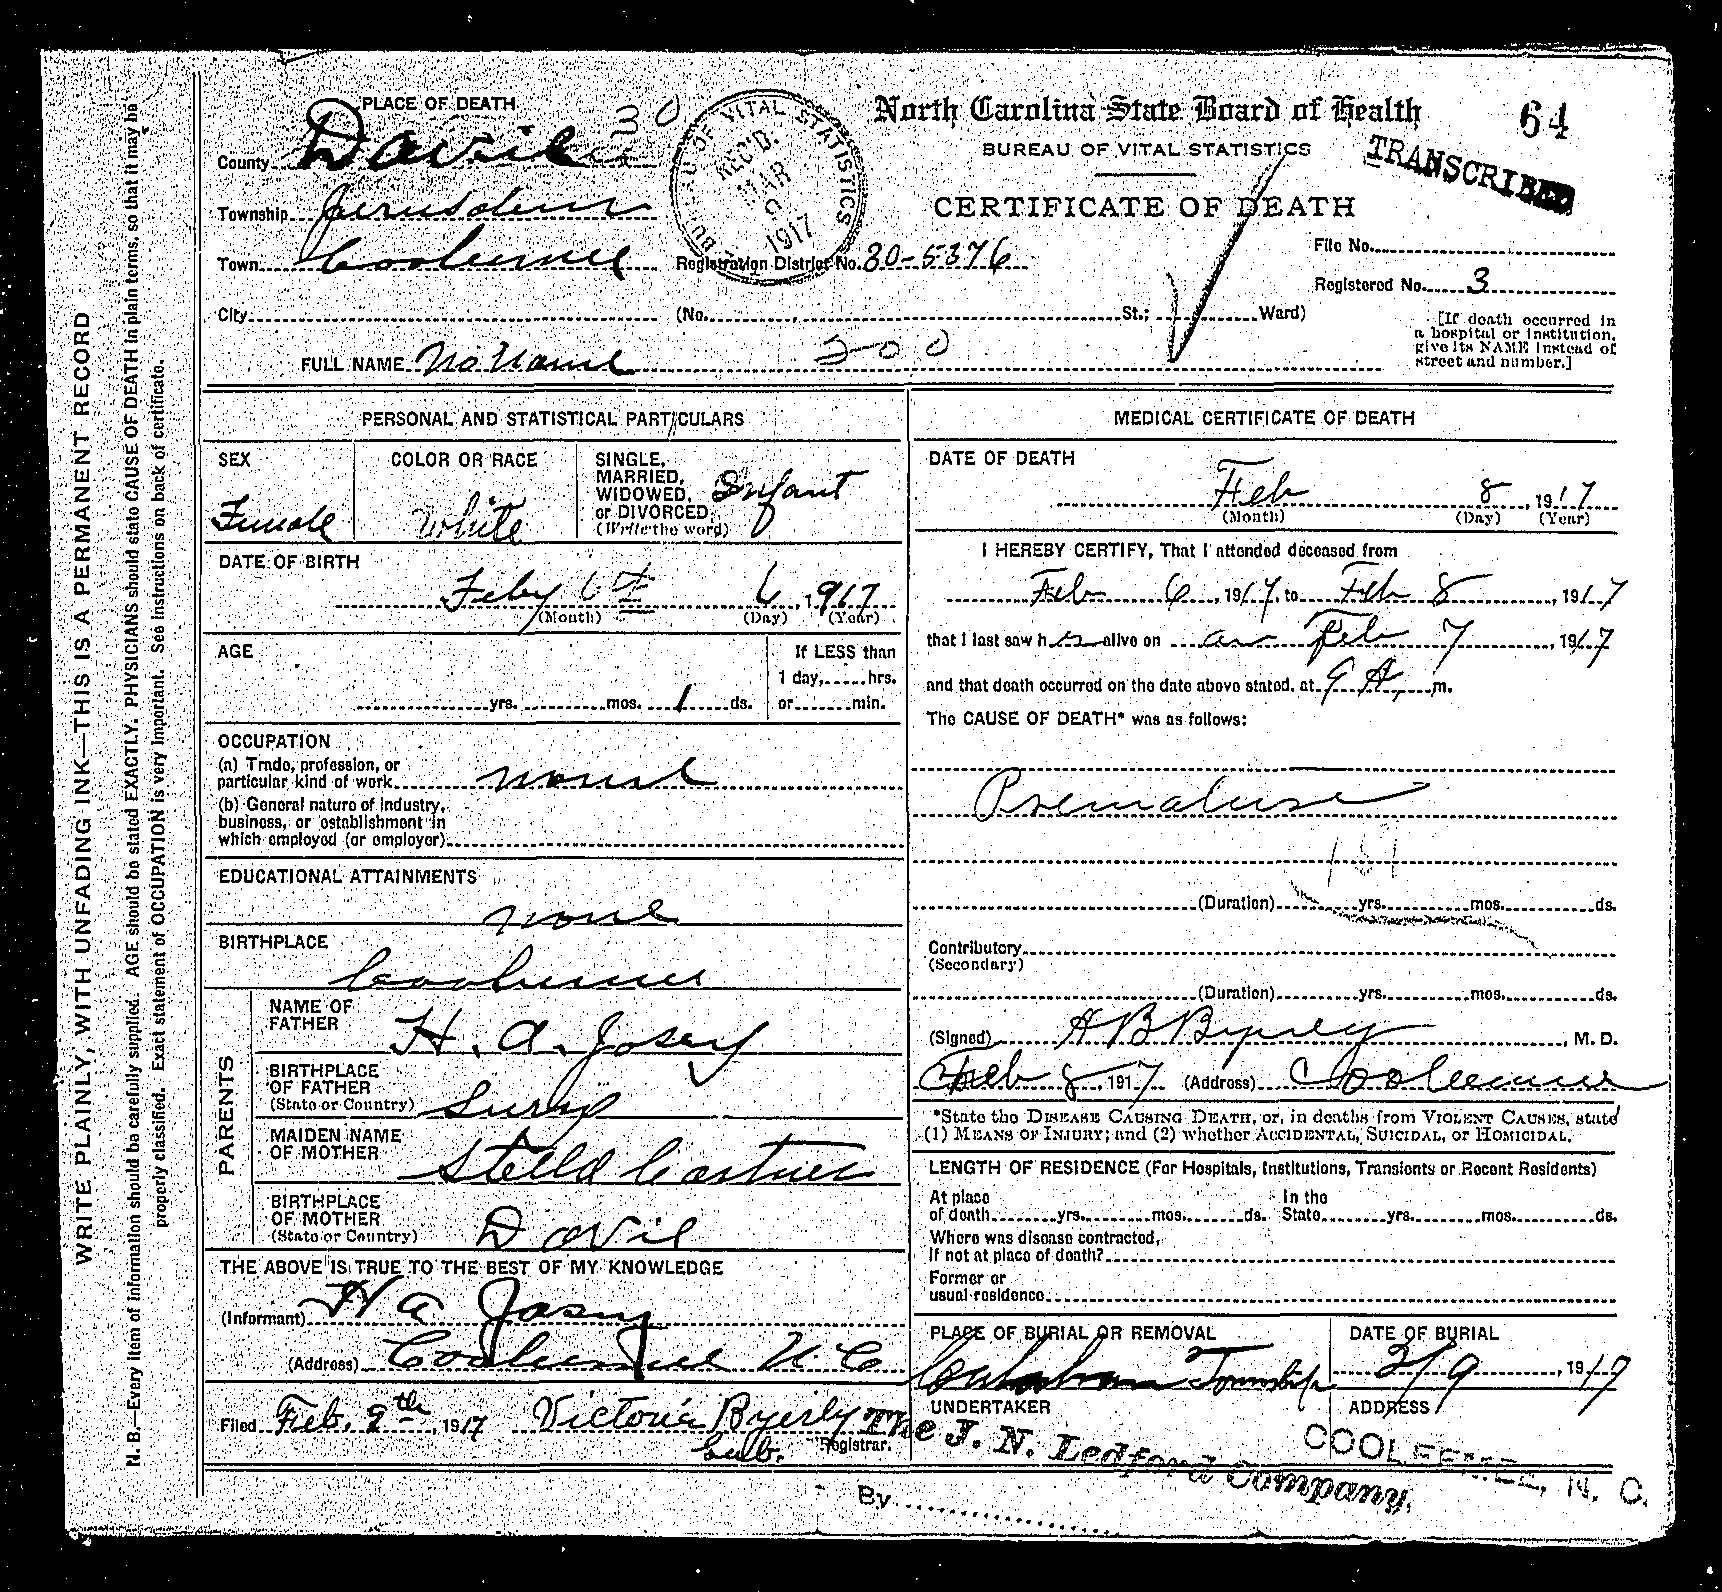 WRITE PLAINLY, WITH UNFADING INK—THIS IS A PERMANENT RECORD
N. B.—Every item of information should be carefully supplied. AGE should be stated EXACTLY. PHYSICIANS should state CAUSE OF DEATH in plain terms, so that it may be
properly classified. Exact statement of OCCUPATION is very important. See instructions on back of certificate.
PLACE OF DEATH 30
County Davie
Township Jerusalem
Town Cooleemee
City (No. St.; Ward)
BUREAU OF VITAL STATISTICS
REC'D.
MAR
1917
North Carolina State Board of Health
64
BUREAU OF VITAL STATISTICS
TRANSCRIBED
CERTIFICATE OF DEATH
File No.
Registration District No. 30-5376
Registered No. 3
[If death occurred in
a hospital or institution,
give its NAME instead of
street and number.]
FULL NAME No Name 200
PERSONAL AND STATISTICAL PARTICULARS
SEX Female
COLOR OR RACE White
SINGLE,
MARRIED,
WIDOWED,
or DIVORCED
(Write the word)
Infant
DATE OF BIRTH
Feby 6th 6, 1917
(Month) (Day) (Year)
AGE
yrs. mos. 1 ds.
If LESS than
1 day, hrs.
or min.
OCCUPATION
(a) Trade, profession, or
particular kind of work none
(b) General nature of industry,
business, or establishment in
which employed (or employer)
EDUCATIONAL ATTAINMENTS
none
BIRTHPLACE
Cooleemee
PARENTS
NAME OF
FATHER H. A. Josey
BIRTHPLACE
OF FATHER
(State or Country) Surry
MAIDEN NAME
OF MOTHER Stella Cartner
BIRTHPLACE
OF MOTHER
(State or Country) Davie
THE ABOVE IS TRUE TO THE BEST OF MY KNOWLEDGE
(Informant) H A Josey
(Address) Cooleemee N C
Filed Feb. 9th, 1917 Victoria Byerly
Sub. Registrar.
MEDICAL CERTIFICATE OF DEATH
DATE OF DEATH
Feb 8, 1917
(Month) (Day) (Year)
I HEREBY CERTIFY, That I attended deceased from
Feb 6, 1917, to Feb 8, 1917
that I last saw h alive on Feb 7, 1917
and that death occurred on the date above stated, at 9 A. m.
The CAUSE OF DEATH* was as follows:
Premature
151
(Duration) yrs. mos. ds.
Contributory
(Secondary)
(Duration) yrs. mos. ds.
(Signed) A B Byerly, M. D.
Feb 8, 1917 (Address) Cooleemee
*State the DISEASE CAUSING DEATH, or, in deaths from VIOLENT CAUSES, state
(1) MEANS OF INJURY; and (2) whether ACCIDENTAL, SUICIDAL, or HOMICIDAL.
LENGTH OF RESIDENCE (For Hospitals, Institutions, Transients or Recent Residents)
At place
of death yrs. mos. ds.
In the
State yrs. mos. ds.
Where was disease contracted,
If not at place of death?
Former or
usual residence
PLACE OF BURIAL OR REMOVAL
Calahaln Township
DATE OF BURIAL
2/9, 1917
UNDERTAKER
The J. N. Ledford Company,
ADDRESS
COOLEEMEE, N. C.
By